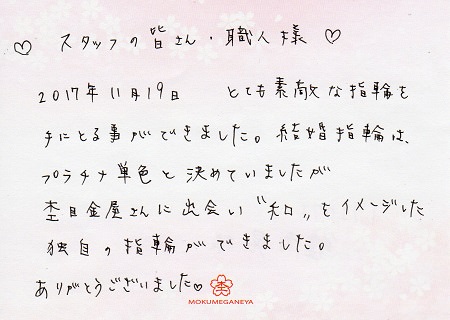 ♡ スタッフの皆さん・職人様 ♡
2017年11月19日 とても素敵な指輪を
手にとる事ができました。結婚指輪は、
プラチナ単色と決めていましたが
杢目金屋さんに出会い〝和〟をイメージした
独自の指輪ができました。
ありがとうございました♡
杢
MOKUMEGANEYA